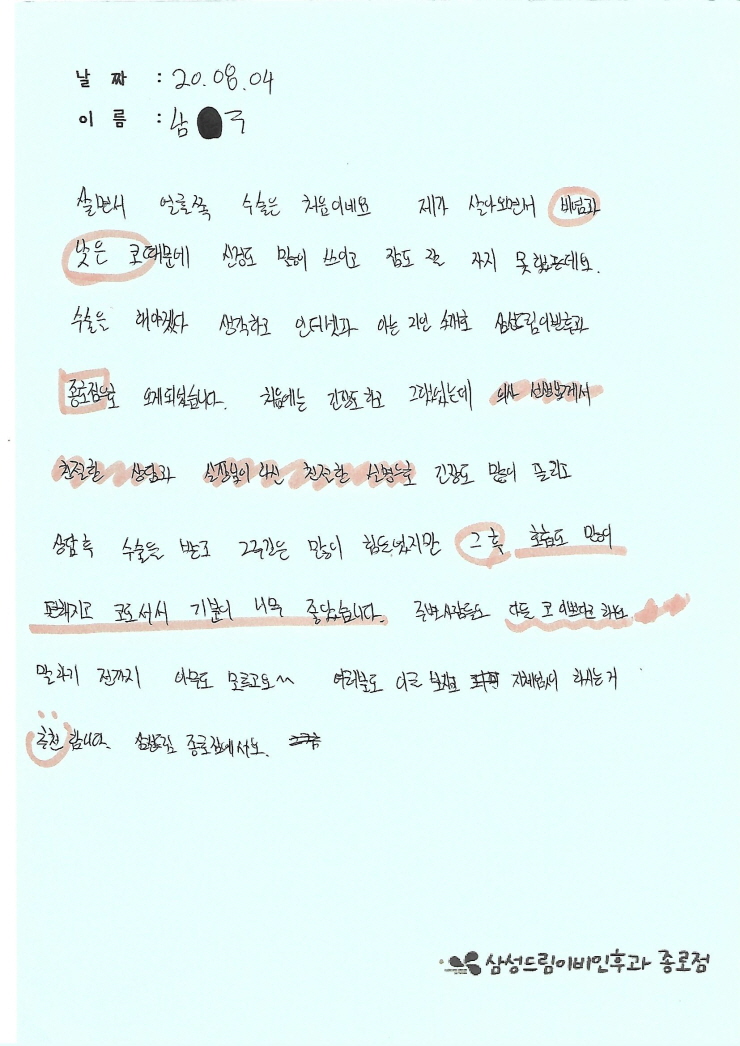 날 짜 : 20.08.04
이 름 : 남 구
살면서 얼굴쪽 수술은 처음이네요 제가 살아오면서 비염과
낮은 코때문에 신경도 많이 쓰이고 잠도 잘 자지 못했는데요.
수술은 해야겠다 생각하고 인터넷과 아는 지인 소개로 삼성드림이비인후과
종로점으로 오게되었습니다. 처음에는 긴장도 하고 그랬었는데 의사 선생님께서
친절한 상담과 실장님의 친절한 설명으로 긴장도 많이 풀리고
상담 후 수술을 받고 많이 힘들었지만 그 후 호흡도 많이
편해지고 코도서서 기분이 너무 좋았습니다. 주변사람들도 다들 코 이쁘다고 하고
말하기 전까지 아무도 모르고요~ 여러분도 이글 하시는거
추천 합니다. 삼성드림 종로점에서요.
삼성드림이비인후과 종로점